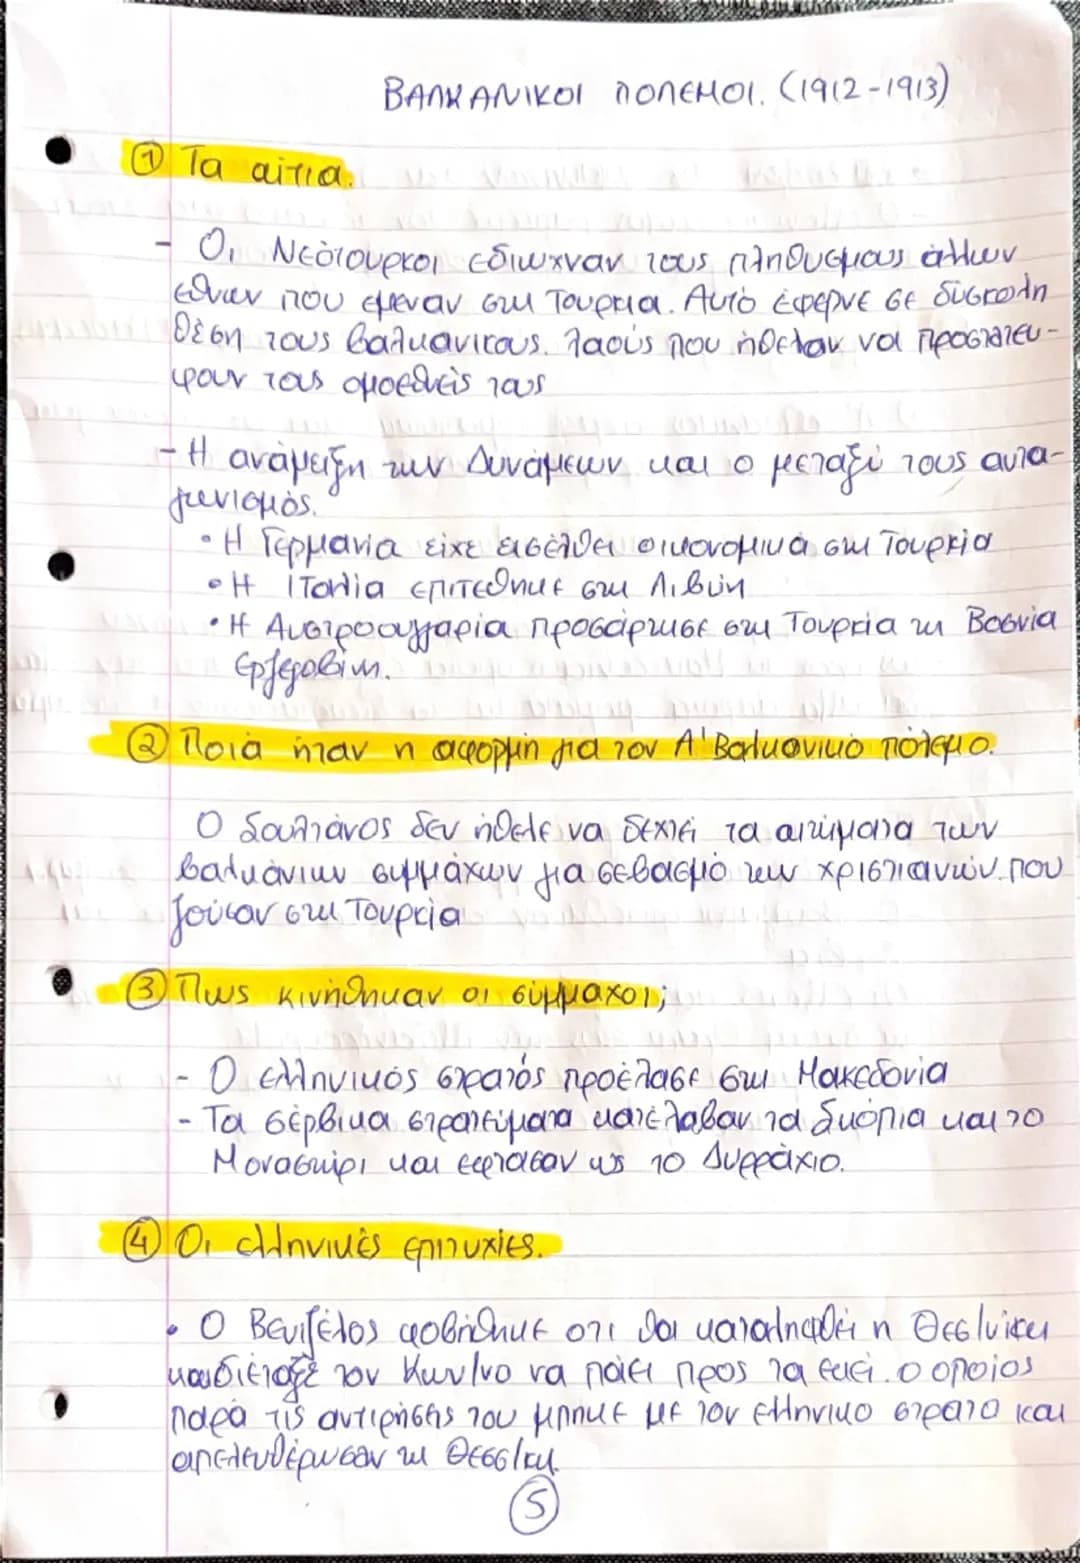 ΒΑΛΚΑΝΙΚΟΙ ΠΟΛΕΜΟΙ. (1912-1913)
① Τα αίτια.
- Οι Νεότουρκοι εδιωχναν τους πληθυσμους άλλων
εθνων που εμεναν στη Τουρκια. Αυτό έφερνε σε δύσκολη
θέση τους βαλκανικους. λαούς που ήθελαν να προστατευ-
ψουν τους ομοεθνείς τους
- Η ανάμειξη των Δυνάμεων και ο μεταξύ τους αντα-
γωνισμός.
• Η Γερμανία είχε εισέλθει οικονομικά στη Τουρκία
• Η Ιταλία επιτεθηκε στη Λιβύη
• Η Αυστροουγγαρία προσάρτησε στη Τουρκία τη Βοσνία
Ερζεγοβίνη.
② Ποιά ήταν η αφορμή για τον Α' Βαλκανικό πόλεμο.
Ο Σουλτάνος δεν ήθελε να δεχτεί τα αιτήματα των
βαλκάνιων συμμάχων για σεβασμό των χριστιανών. που
ζούσαν στη Τουρκία
③ Πως κινήθηκαν οι σύμμαχοι;
- Ο ελληνικός στρατός προέλασε στη Μακεδονία
- Τα σέρβικα στρατεύματα κατέλαβαν τα Σκόπια και το
Μοναστήρι και εφτασαν ως το Δυρράχιο.
④ Οι ελληνικές επιτυχίες.
• Ο Βενιζέλος φοβήθηκε οτι θα καταληφθεί η Θεσ/νίκη
και διέταξε τον Κων/νο να πάει προς τα εκεί. ο οποίος
παρά τις αντιρήσεις του μπηκε με τον ελληνικο στρατο και
απελευθέρωσαν τη Θεσσ/κη.
⑤